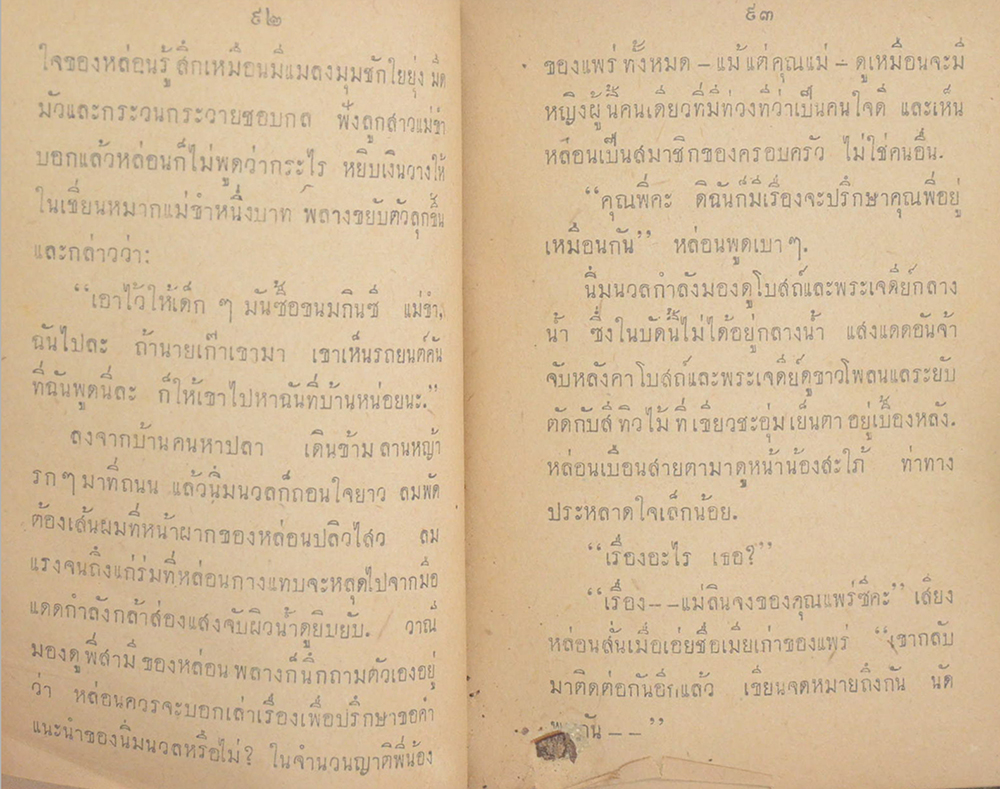 ๙๒
ใจของหล่อนรู้สึกเหมือนมีแมลงมุมชักใยยุ่ง มืด
มัวและกระวนกระวายชอบกล ฟังลูกสาวแม่ขำ
บอกแล้วหล่อนก็ไม่พูดว่ากระไร หยิบเงินวางให้
ในเชี่ยนหมากแม่ขำหนึ่งบาท พลางขยับตัวลุกขึ้น
และกล่าวว่า:
“เอาไว้ให้เด็ก ๆ มันซื้อขนมกินซี แม่ขำ,
ฉันไปละ ถ้านายเก๊าเขามา เขาเห็นรถยนต์คัน
ที่ฉันพูดนี่ละ ก็ให้เขาไปหาฉันที่บ้านหน่อยนะ.”
ลงจากบ้านคนหาปลา เดินข้ามลานหญ้า
รกๆ มาที่ถนน แล้วนิ่มนวลก็ถอนใจยาว ลมพัด
ต้องเส้นผมที่หน้าผากของหล่อนปลิวไสว ลม
แรงจนถึงแก่ร่มที่หล่อนกางแทบจะหลุดไปจากมือ
แดดกำลังกล้าส่องแสงจับผิวน้ำดูยิบยับ. วาณี
มองดูพี่สามีของหล่อน พลางก็นึกถามตัวเองอยู่
ว่า หล่อนควรจะบอกเล่าเรื่องเพื่อปรึกษาขอคำ
แนะนำของนิ่มนวลหรือไม่? ในจำนวนญาติพี่น้อง
๙๓
ของแพร่ ทั้งหมด – แม้แต่คุณแม่ – ดูเหมือนจะมี
หญิงผู้นี้คนเดียวที่มีท่วงทีว่าเป็นคนใจดี และเห็น
หล่อนเป็นสมาชิกของครอบครัว ไม่ใช่คนอื่น.
“คุณพี่คะ ดิฉันก็มีเรื่องจะปรึกษาคุณพี่อยู่
เหมือนกัน” หล่อนพูดเบาๆ.
นิ่มนวลกำลังมองดูโบสถ์และพระเจดีย์กลาง
น้ำ ซึ่งในบัดนี้ไม่ได้อยู่กลางน้ำ แสงแดดอันจ้า
จับหลังคาโบสถ์และพระเจดีย์ดูขาวโพลนแลระยับ
ตัดกับสีทิวไม้ที่เขียวชะอุ่มเย็นตาอยู่เบื้องหลัง.
หล่อนเบือนสายตามาดูหน้าน้องสะใภ้ ท่าทาง
ประหลาดใจเล็กน้อย.
“เรื่องอะไร เธอ?”
“เรื่อง – – แม่สินจงของคุณแพร่ซีคะ” เสียง
หล่อนสั่นเมื่อเอ่ยชื่อเมียเก่าของแพร่ “เขากลับ
มาติดต่อกันอีกแล้ว เขียนจดหมายถึงกัน นัด
กัน – – ”